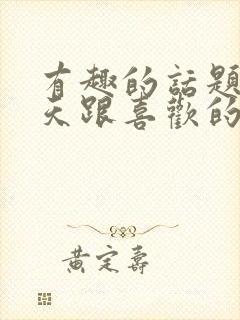 有趣的話題
天跟喜歡的
黃定壽